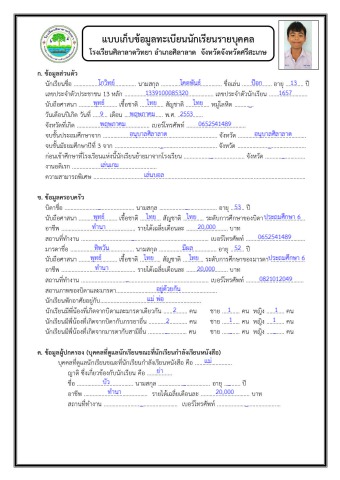 แบบเก็บข้อมูลทะเบียนนักเรียนรายบุคคล
โรงเรียนศิลาลาดวิทยา อำเภอศิลาลาด จังหวัดจังหวัดศรีสะเกษ
ก. ข้อมูลส่วนตัว
นักเรียนชื่อ โกวิทย์ นามสกุล โคตพันธ์ ชื่อเล่น ป๊อก อายุ 13 ปี
เลขประจำตัวประชาชน 13 หลัก 1339100085320 เลขประจำตัวนักเรียน 1657
นับถือศาสนา พุทธ เชื้อชาติ ไทย สัญชาติ ไทย หมู่โลหิต
วันเดือนปีเกิด วันที่ 9 เดือน พฤษภาคม พ.ศ. 2553
จังหวัดที่เกิด พฤษภาคม เบอร์โทรศัพท์ 0652541489
จบชั้นประถมศึกษาจาก อนุบาลศิลาลาด จังหวัด อนุบาลศิลาลาด
จบชั้นมัธยมศึกษาปีที่ 3 จาก จังหวัด
ก่อนเข้าศึกษาที่โรงเรียนแห่งนี้นักเรียนย้ายมาจากโรงเรียน จังหวัด
งานอดิเรก เล่นเกม
ความสามารถพิเศษ เล่นบอล
ข. ข้อมูลครอบครัว
บิดาชื่อ นามสกุล อายุ 53 ปี
นับถือศาสนา พุทธ เชื้อชาติ ไทย สัญชาติ ไทย ระดับการศึกษาของบิดา ประถมศึกษา 6
อาชีพ ทำนา รายได้เฉลี่ยเดือนละ 20,000 บาท
สถานที่ทำงาน เบอร์โทรศัพท์ 0652541489
มารดาชื่อ ทิพวัน นามสกุล มีผล อายุ 52 ปี
นับถือศาสนา พุทธ เชื้อชาติ ไทย สัญชาติ ไทย ระดับการศึกษาของมารดา ประถมศึกษา 6
อาชีพ ทำนา รายได้เฉลี่ยเดือนละ 20,000 บาท
สถานที่ทำงาน เบอร์โทรศัพท์ 0821012049
สถานภาพของบิดาและมารดา อยู่ด้วยกัน
นักเรียนพักอาศัยอยู่กับ แม่ พ่อ
นักเรียนมีพี่น้องที่เกิดจากบิดาและมารดาเดียวกัน 2 คน ชาย 1 คน หญิง 1 คน
นักเรียนมีพี่น้องที่เกิดจากบิดากับภรรยาอื่น 2 คน ชาย 1 คน หญิง 1 คน
นักเรียนมีพี่น้องที่เกิดจากมารดากับสามีอื่น คน ชาย คน หญิง คน
ค. ข้อมูลผู้ปกครอง (บุคคลที่ดูแลนักเรียนขณะที่นักเรียนกำลังเรียนหนังสือ)
บุคคลที่ดูแลนักเรียนขณะที่นักเรียนกำลังเรียนหนังสือ คือ แม่
ญาติ ซึ่งเกี่ยวข้องกับนักเรียน คือ ย่า
ชื่อ บัว นามสกุล อายุ ปี
อาชีพ ทำนา รายได้เฉลี่ยเดือนละ 20,000 บาท
สถานที่ทำงาน เบอร์โทรศัพท์